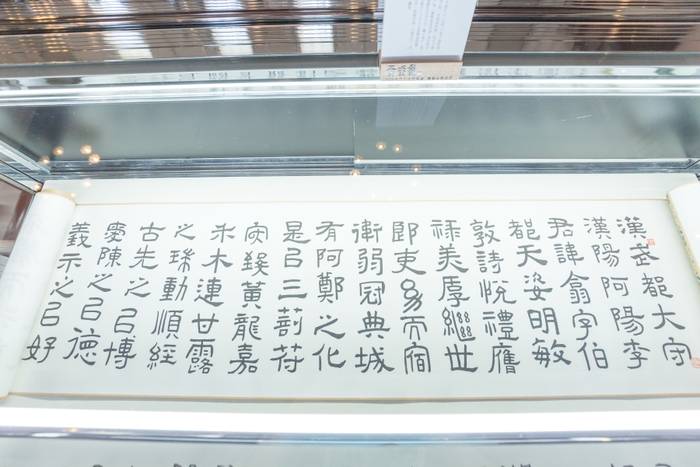 漢武都大守
漢陽阿陽李
君諱翕字伯
都天姿明敏
敦詩悅禮膺
祿美厚繼世
郎吏幼而宿
衛弱冠典城
有阿鄭之化
是以三剖符
守致黃龍嘉
禾木連甘露
之瑞動順經
古先之以博
愛陳之以德
義示之以好